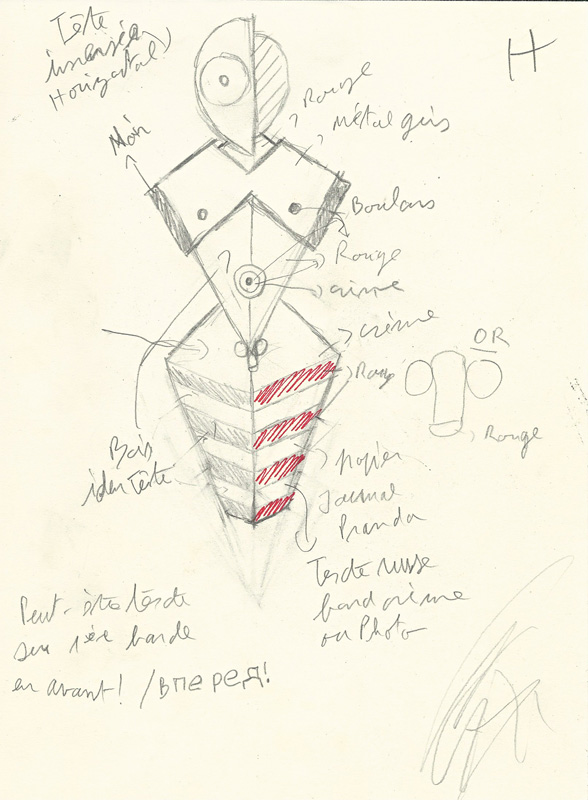 Tête
inversée
Horizontal)
H
Noir
Rouge
Métal gris
Boulons
Rouge
crème
crème
OR
Roug
Rouge
Bois
idem tête
papier
Journal
Pravda
Texte russe
band crème
ou Photo
Peut-être texte
sur 1ère bande
en avant! / вперед!